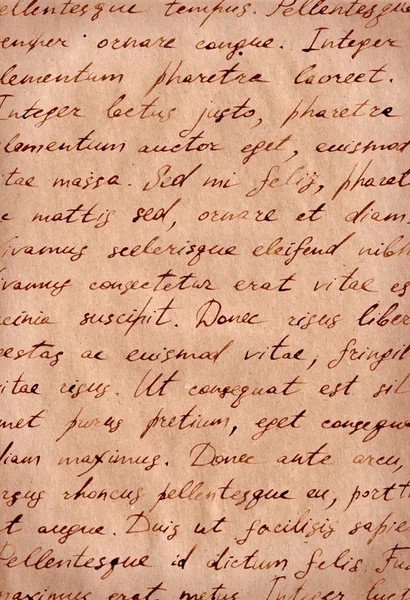 ellentesque tempus. Pellentesque
emper ornare congue. Integer
lementum pharetra laoreet.
Integer lectus justo, pharetra
lamentum auctor eget, euismod
itae massa. Sed mi felis, pharet
c mattis sed, ornare et diam
ivamus scelerisque eleifend nibh
ivamus consectetur erat vitae es
acinia suscipit. Donec risus liber
estas ac euismod vitae, fringil
itae risus. Ut consequat est sil
met purus pretium, eget consequa
diam maximus. Donec ante arcu,
rsus rhoncus pellentesque eu, portt
t augue. Duis ut facilisis sapie
Pellentesque id dictum felis. Fus
maximus erat metus. Integer luct